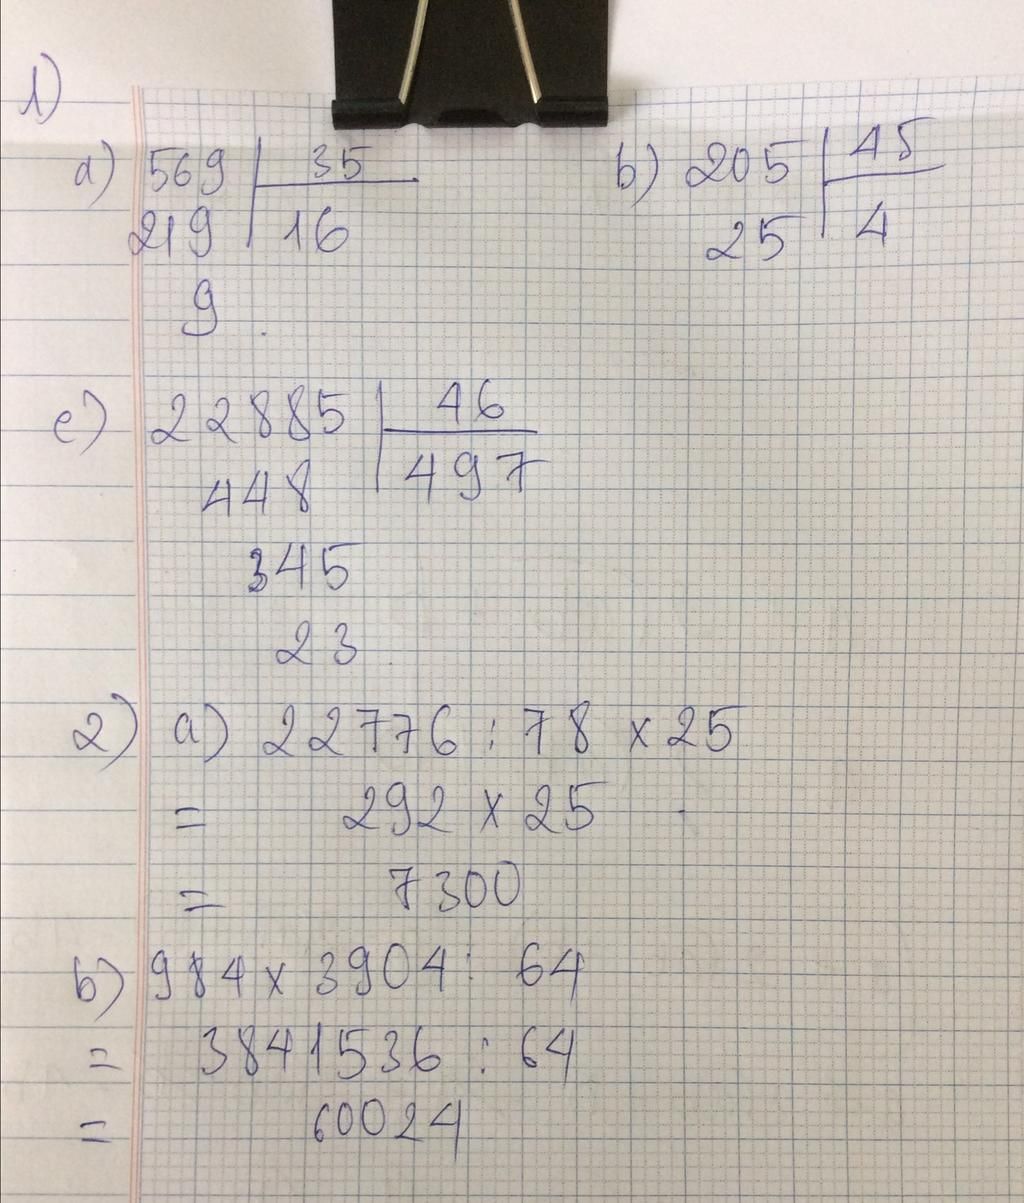 1)
a) 569 | 35
219 | 16
9
b) 205 | 45
25 | 4
c) 22885 | 46
448 | 497
345
23
2) a) 22776 : 78 x 25
= 292 x 25
= 7300
b) 984 x 3904 : 64
= 3841536 : 64
= 60024